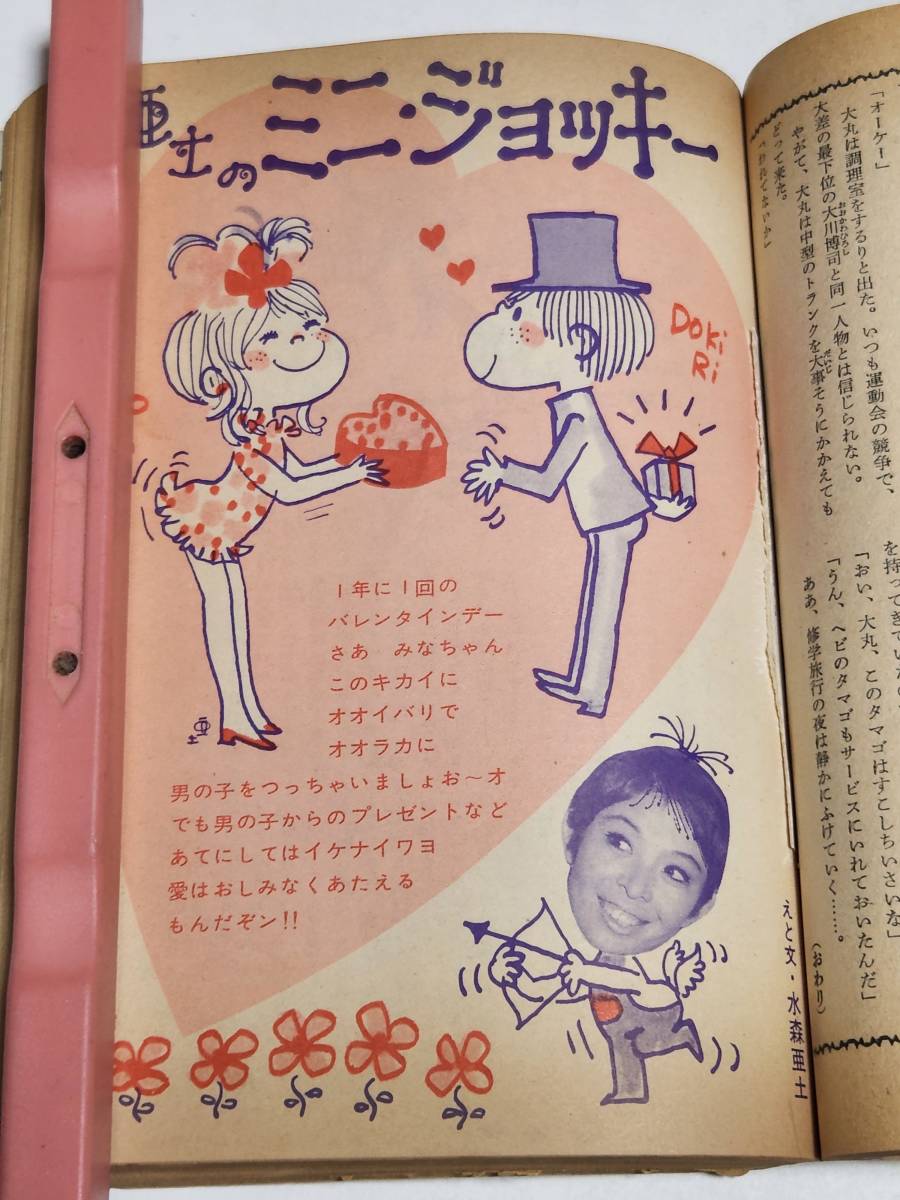 亜土のミニ・ジョッキー
Doki
Ri
1年に1回の
バレンタインデー
さあ　みなちゃん
このキカイに
オオイバリで
オオラカに
男の子をつっちゃいましょお～オ
でも男の子からのプレゼントなど
あてにしてはイケナイワヨ
愛はおしみなくあたえる
もんだぞン!!
亜土
えと文・水森亜土
「オーケー」
大丸は調理室をするりと出た。いつも運動会の競争で、
大差の最下位の大川博司と同一人物とは信じられない。
おおかわひろし
やがて、大丸は中型のトランクを大事そうにかかえても
だいじ
どって来た。
「われてないか」
「おい、大丸、このタマゴはすこしちいさいな」
「うん、ヘビのタマゴもサービスにいれておいたんだ」
ああ、修学旅行の夜は静かにふけていく……。
（おわり）